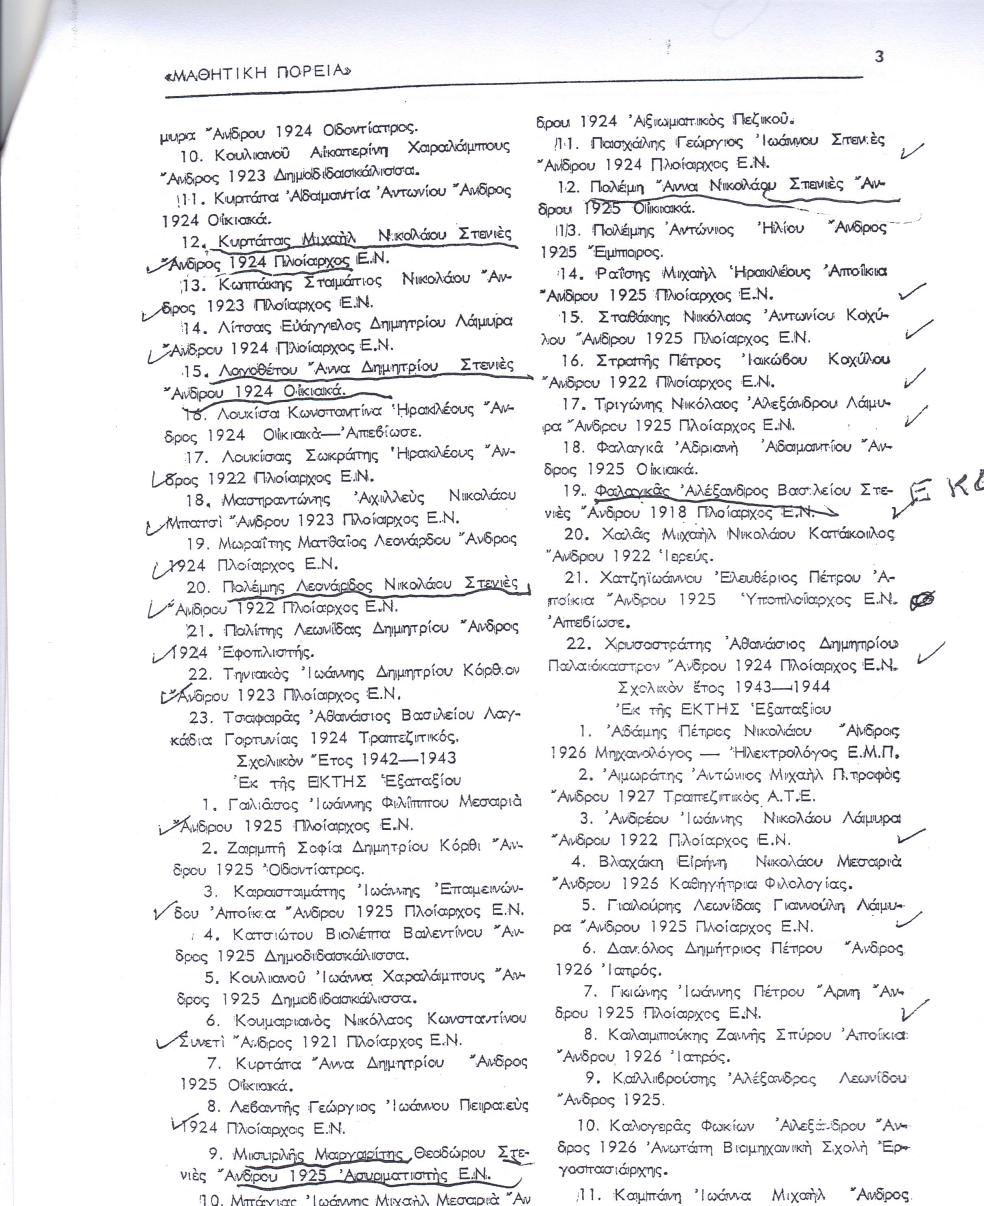 «ΜΑΘΗΤΙΚΗ ΠΟΡΕΙΑ»
3
μυρα Ἄνδρου 1924 Ὀδοντίατρος.
10. Κουλιανοῦ Αἰκατερίνη Χαραλάμπους
Ἄνδρος 1923 Δημοδιδασκάλισσα.
11. Κυρτάτα Ἀδαμαντία Ἀντωνίου Ἄνδρος
1924 Οἰκιακά.
12. Κυρτάτας Μιχαὴλ Νικολάου Στενιὲς
Ἄνδρος 1924 Πλοίαρχος Ε.Ν.
13. Κωττάκης Σταμάτιος Νικολάου Ἄν-
δρος 1923 Πλοίαρχος Ε.Ν.
14. Λίτσας Εὐάγγελος Δημητρίου Λάμυρα
Ἄνδρου 1924 Πλοίαρχος Ε.Ν.
15. Λογοθέτου Ἄννα Δημητρίου Στενιὲς
Ἄνδρου 1924 Οἰκιακά.
16. Λουκίσα Κωνσταντίνα Ἡρακλέους Ἄν-
δρος 1924 Οἰκιακὰ—Ἀπεβίωσε.
17. Λουκίσας Σωκράτης Ἡρακλέους Ἄν-
δρος 1922 Πλοίαρχος Ε.Ν.
18. Μαστραντώνης Ἀχιλλεὺς Νικολάου
Μπατσὶ Ἄνδρου 1923 Πλοίαρχος Ε.Ν.
19. Μωραΐτης Ματθαῖος Λεονάρδου Ἄνδρος
1924 Πλοίαρχος Ε.Ν.
20. Πολέμης Λεονάρδος Νικολάου Στενιὲς
Ἄνδρου 1922 Πλοίαρχος Ε.Ν.
21. Πολίτης Λεωνίδας Δημητρίου Ἄνδρος
1924 Ἐφοπλιστής.
22. Τηνιακὸς Ἰωάννης Δημητρίου Κόρθιον
Ἄνδρου 1923 Πλοίαρχος Ε.Ν.
23. Τσαφαρᾶς Ἀθανάσιος Βασιλείου Λαγ-
κάδια Γορτυνίας 1924 Τραπεζιτικός.
Σχολικὸν Ἔτος 1942—1943
Ἐκ τῆς ΕΚΤΗΣ Ἑξαταξίου
1. Γαλιᾶσος Ἰωάννης Φιλίππου Μεσαριὰ
Ἄνδρου 1925 Πλοίαρχος Ε.Ν.
2. Ζαρμπῆ Σοφία Δημητρίου Κόρθι Ἄν-
δρου 1925 Ὀδοντίατρος.
3. Καραϊσταμάτης Ἰωάννης Ἐπαμεινών-
δου Ἀποίκια Ἄνδρου 1925 Πλοίαρχος Ε.Ν.
4. Κατσιώτου Βιολέττα Βαλεντίνου Ἄν-
δρος 1925 Δημοδιδασκάλισσα.
5. Κουλιανοῦ Ἰωάννα Χαραλάμπους Ἄν-
δρος 1925 Δημοδιδασκάλισσα.
6. Κουμαριανὸς Νικόλαος Κωνσταντίνου
Συνετὶ Ἄνδρος 1921 Πλοίαρχος Ε.Ν.
7. Κυρτάτα Ἄννα Δημητρίου Ἄνδρος
1925 Οἰκιακά.
8. Λεβαντῆς Γεώργιος Ἰωάννου Πειραιεὺς
1924 Πλοίαρχος Ε.Ν.
9. Μισυρλῆς Μαργαρίτης Θεοδώρου Στε-
νιὲς Ἄνδρου 1925 Ἀσυρματιστὴς Ε.Ν.
10. Μπάγιας Ἰωάννης Μιχαὴλ Μεσαριὰ Ἄν
δρου 1924 Ἀξιωματικὸς Πεζικοῦ.
11. Πασχάλης Γεώργιος Ἰωάννου Στενιὲς
Ἄνδρου 1924 Πλοίαρχος Ε.Ν.
12. Πολέμη Ἄννα Νικολάου Στενιὲς Ἄν-
δρου 1925 Οἰκιακά.
13. Πολέμης Ἀντώνιος Ἠλίου Ἄνδρος
1925 Ἔμπορος.
14. Ραΐσης Μιχαὴλ Ἡρακλέους Ἀποίκια
Ἄνδρου 1925 Πλοίαρχος Ε.Ν.
15. Σταθάκης Νικόλαος Ἀντωνίου Κοχύ-
λου Ἄνδρου 1925 Πλοίαρχος Ε.Ν.
16. Στραπῆς Πέτρος Ἰακώβου Κοχύλου
Ἄνδρου 1922 Πλοίαρχος Ε.Ν.
17. Τριγώνης Νικόλαος Ἀλεξάνδρου Λάμυ-
ρα Ἄνδρου 1925 Πλοίαρχος Ε.Ν.
18. Φαλαγκᾶ Ἀδριανὴ Ἀδαμαντίου Ἄν-
δρος 1925 Οἰκιακά.
19. Φαλαγκᾶς Ἀλέξανδρος Βασιλείου Στε-
νιὲς Ἄνδρου 1918 Πλοίαρχος Ε.Ν.
20. Χαλᾶς Μιχαὴλ Νικολάου Κατάκοιλος
Ἄνδρου 1922 Ἱερεύς.
21. Χατζηϊωάννου Ἐλευθέριος Πέτρου Ἀ-
ποίκια Ἄνδρου 1925 Ὑποπλοίαρχος Ε.Ν.
Ἀπεβίωσε.
22. Χρυσοστράτης Ἀθανάσιος Δημητρίου
Παλαιόκαστρον Ἄνδρου 1924 Πλοίαρχος Ε.Ν.
Σχολικὸν ἔτος 1943—1944
Ἐκ τῆς ΕΚΤΗΣ Ἑξαταξίου
1. Ἀδάμης Πέτρος Νικολάου Ἄνδρος
1926 Μηχανολόγος — Ἠλεκτρολόγος Ε.Μ.Π.
2. Αἱμωράτης Ἀντώνιος Μιχαὴλ Πιτροφὸς
Ἄνδρου 1927 Τραπεζιτικὸς Α.Τ.Ε.
3. Ἀνδρέου Ἰωάννης Νικολάου Λάμυρα
Ἄνδρου 1922 Πλοίαρχος Ε.Ν.
4. Βλαχάκη Εἰρήνη Νικολάου Μεσαριὰ
Ἄνδρου 1926 Καθηγήτρια Φιλολογίας.
5. Γιαλούρης Λεωνίδας Γιαννούλη Λάμυ-
ρα Ἄνδρου 1925 Πλοίαρχος Ε.Ν.
6. Δανιόλος Δημήτριος Πέτρου Ἄνδρος
1926 Ἰατρός.
7. Γκιώνης Ἰωάννης Πέτρου Ἄρνη Ἄν-
δρου 1925 Πλοίαρχος Ε.Ν.
8. Καλαμπούκης Ζαννῆς Σπύρου Ἀποίκια
Ἄνδρου 1926 Ἰατρός.
9. Καλλιβρούσης Ἀλέξανδρος Λεωνίδου
Ἄνδρος 1925.
10. Καλογερᾶς Φωκίων Ἀλεξάνδρου Ἄν-
δρος 1926 Ἀνωτάτη Βιομηχανικὴ Σχολὴ Ἐρ-
γοστασιάρχης.
11. Καμπάνη Ἰωάννα Μιχαὴλ Ἄνδρος